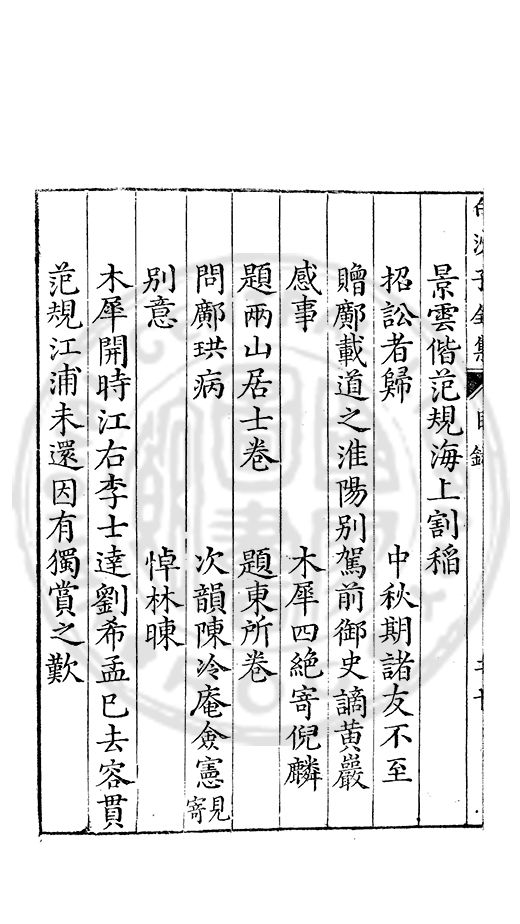 景雲偕范規海上割稻
招訟者歸　中秋期諸友不至
贈鄺載道之淮陽別駕前御史謫黃巖
感事　木犀四絶寄倪麟
題兩山居士卷　題東所卷
問鄺珙病　次韻陳冷庵僉憲見寄
別意　悼林暕
木犀開時江右李士達劉希孟已去容貫
范規江浦未還因有獨賞之歎